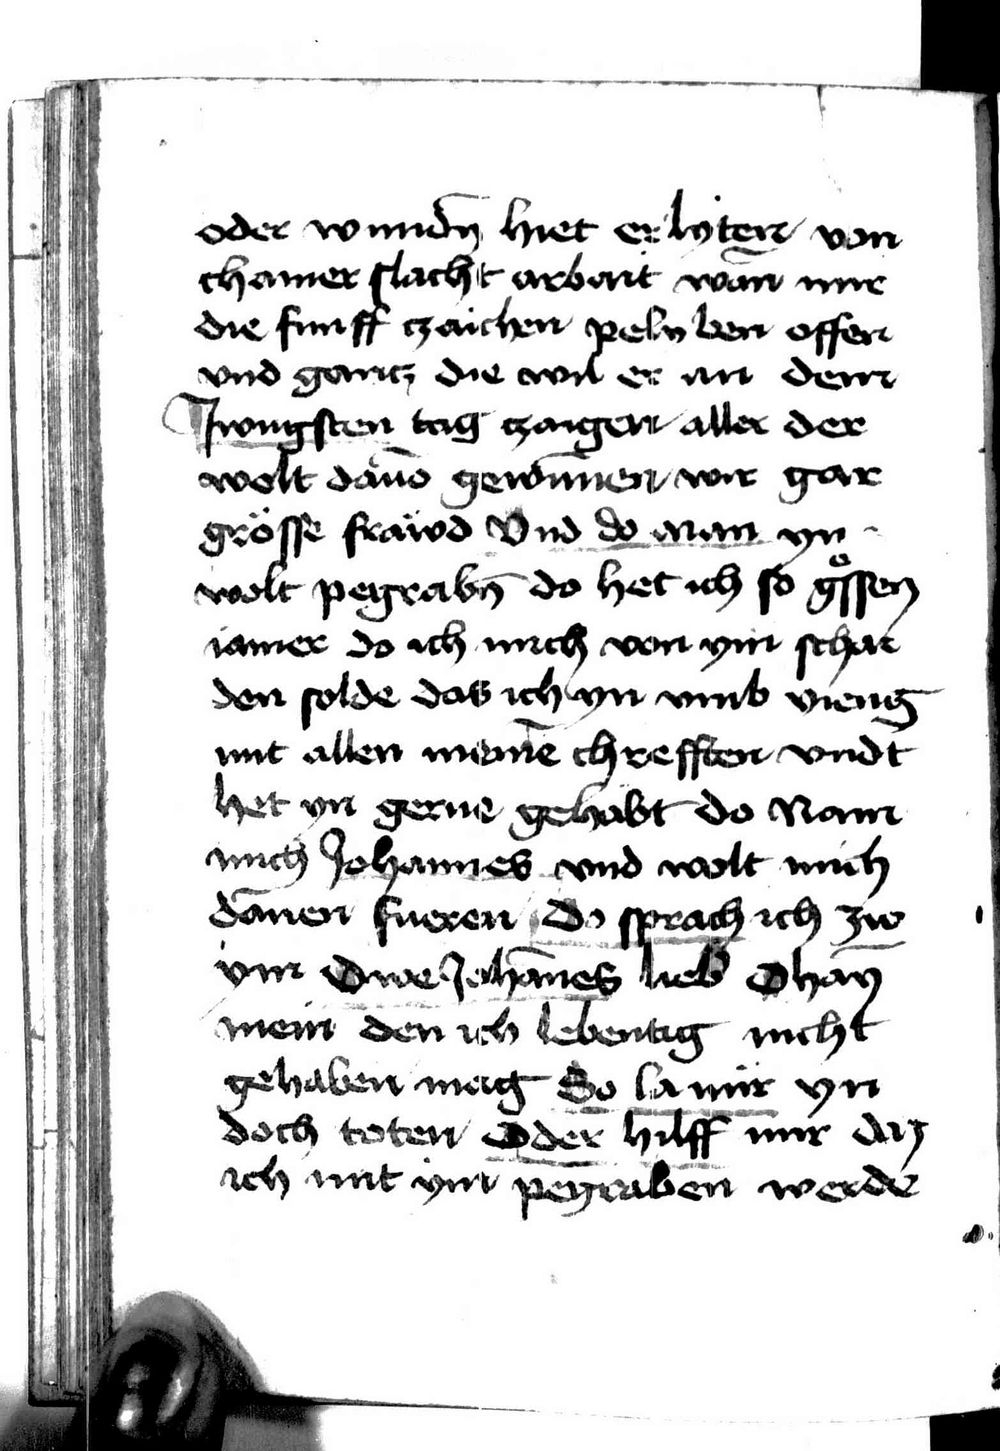 oder wundn̄ hiet erlyten von
chainer slacht arbait wan̄ nur
die funff czaichen pelyben offen
vnd gantz die wil er an dem
Jwngsten tag czaigen aller der
welt dauō gewin̄nen wir gar
grösse fräwd Vnd do man yn
wolt pegrabn̄ do het ich so gͦssen
iamer do ich mich von ym schai
den solde das ich yn vmb vieng
mit allen meinē chrefften vndt
het yn gerne gehabt do Nam
mich Johannes vnd wolt mich
dānen fueren Do sprach ich zw
ym Owe Johān̄es lieb Ohaȳ
mein den ich lebentig nicht
gehaben mag So la mir yn
doch toten Oder hilff mir daz
ich mit ym pegraben werde